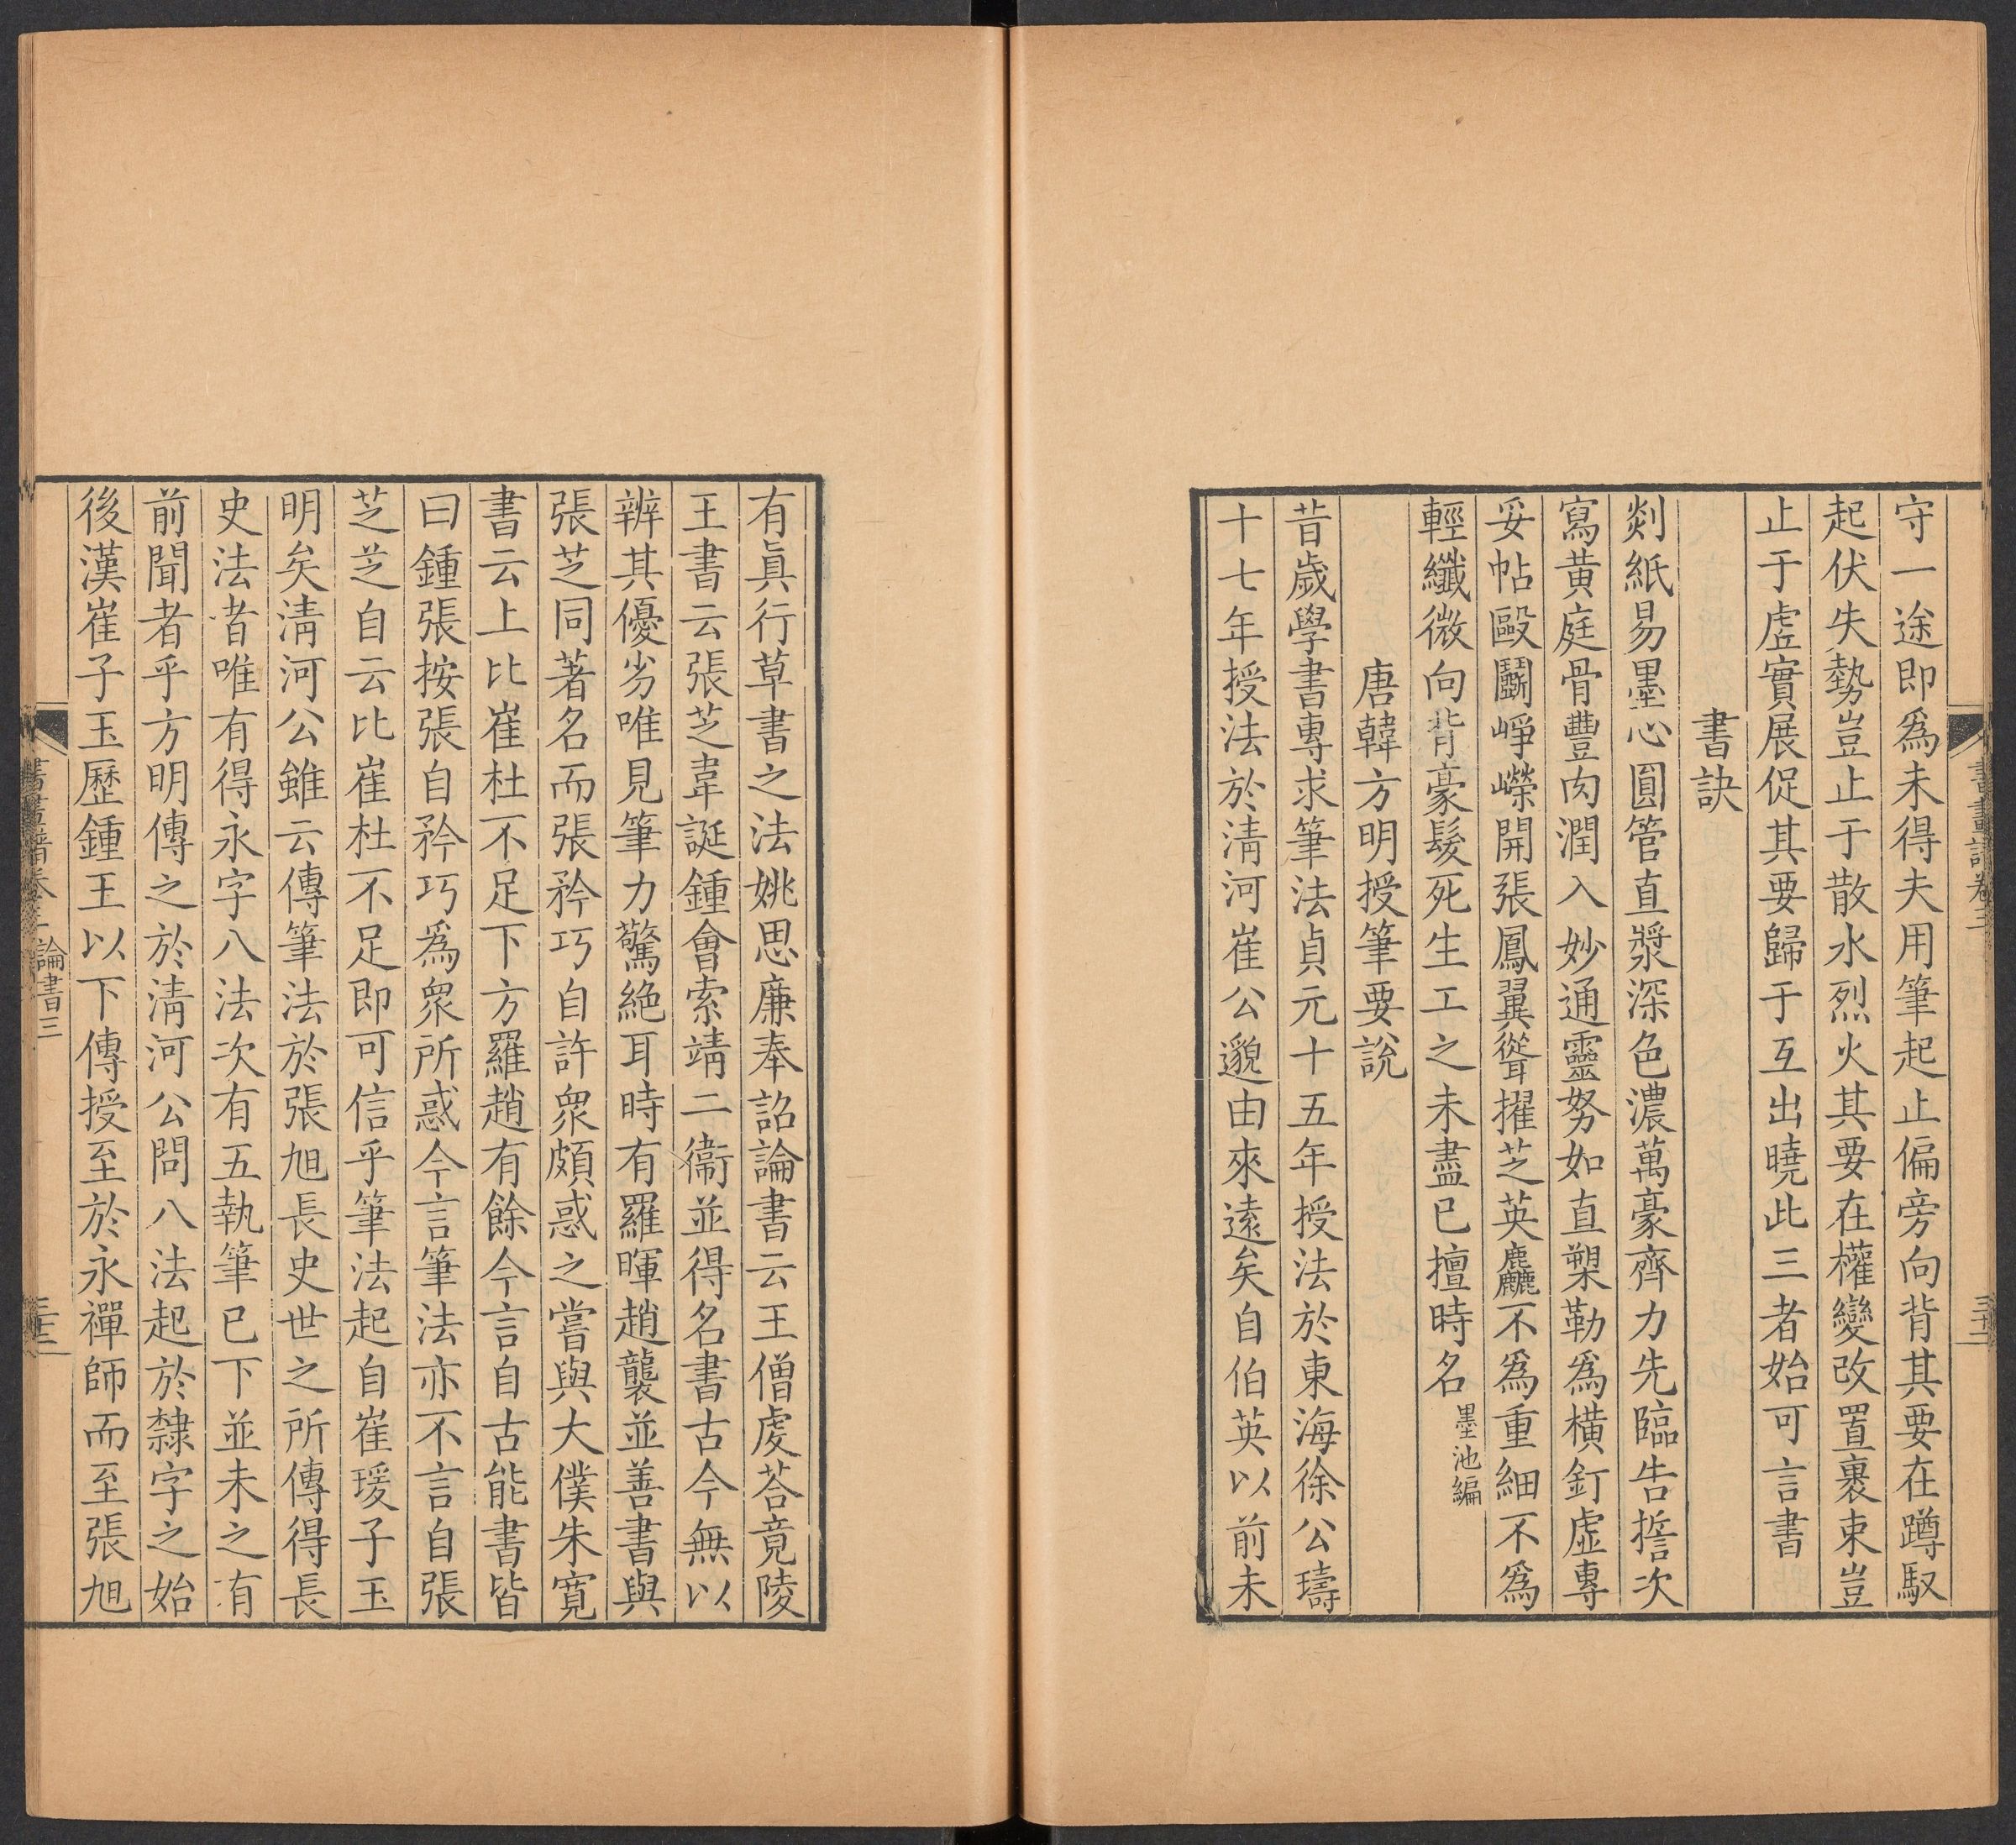 書畫譜卷三
三十二
守一途即爲未得夫用筆起止偏旁向背其要在蹲馭
起伏失勢豈止于散水烈火其要在權變改置裹束豈
止于虛實展促其要歸于互出曉此三者始可言書
書訣
剡紙易墨心圓管直漿深色濃萬豪齊力先臨告誓次
寫黃庭骨豐肉潤入妙通靈努如直槊勒爲橫釘虛專
妥帖毆鬭崢嶸開張鳳翼聳擢芝英麤不爲重細不爲
輕纖微向背豪髮死生工之未盡已擅時名墨池編
唐韓方明授筆要說
昔歲學書專求筆法貞元十五年授法於東海徐公璹
十七年授法於淸河崔公邈由來遠矣自伯英以前未
有眞行草書之法姚思廉奉詔論書云王僧虔荅竟陵
王書云張芝韋誕鍾會索靖二衞並得名書古今無以
辨其優劣唯見筆力驚絶耳時有羅暉趙襲並善書與
張芝同著名而張矜巧自許衆頗惑之嘗與大僕朱寬
書云上比崔杜不足下方羅趙有餘今言自古能書皆
曰鍾張按張自矜巧爲衆所惑今言筆法亦不言自張
芝芝自云比崔杜不足即可信乎筆法起自崔瑗子玉
明矣淸河公雖云傳筆法於張旭長史世之所傳得長
史法者唯有得永字八法次有五執筆巳下並未之有
前聞者乎方明傳之於淸河公問八法起於隸字之始
後漢崔子玉歷鍾王以下傳授至於永禪師而至張旭
書畫譜卷三 論書三
三十二